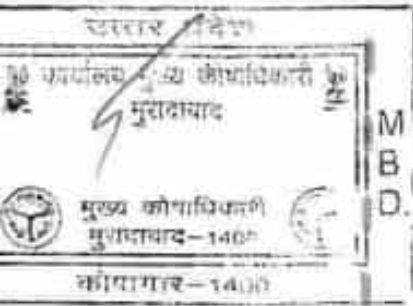 उत्तर प्रदेश
कार्यालय मुख्य कोषाधिकारी
मुरादाबाद
मुख्य कोषाधिकारी
मुरादाबाद-1400
कोषागार-1400
M
B
D.